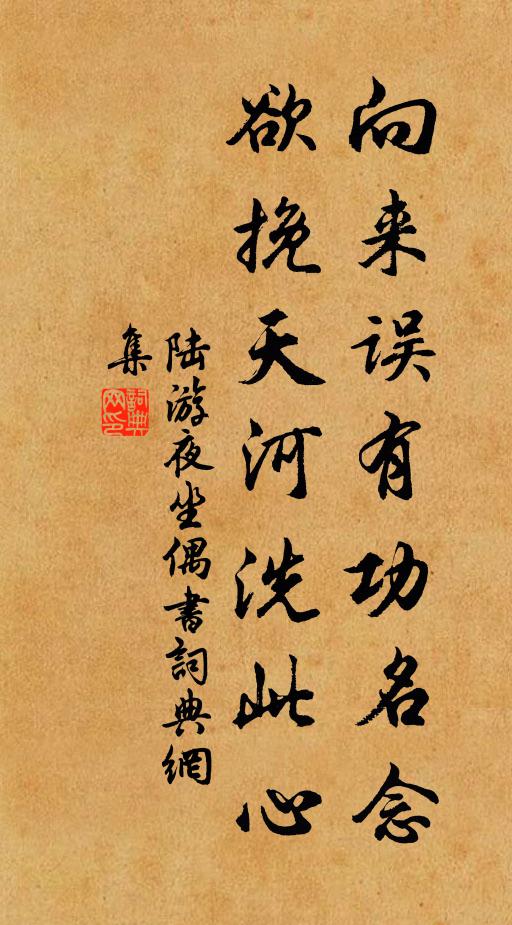 向来误有功名念
欲挽天河洗此心
陆游夜坐偶书詞典網
集
詞典
网印